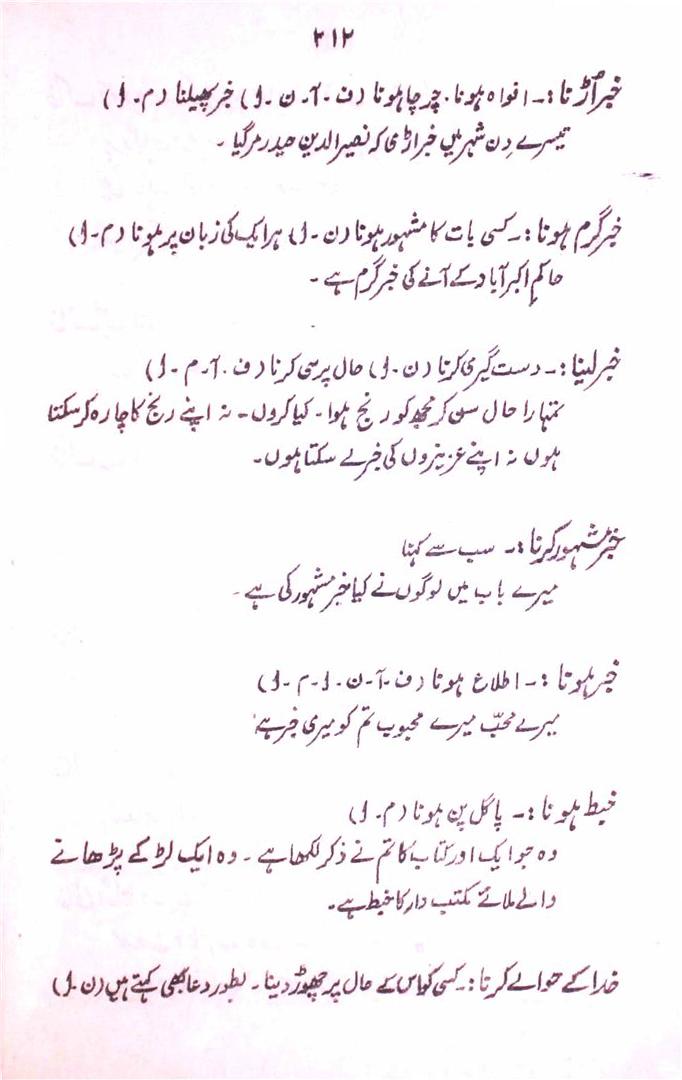 ۳۱۲
خبر اڑنا :۔ افواہ ہونا، چرچا ہونا (ف۔ آ۔ ن۔ ل) خبر پھیلنا (م۔ ل)
تیسرے دن شہر میں خبر اڑی کہ نصیر الدین حیدر مر گیا۔
خبر گرم ہونا :۔ کسی بات کا مشہور ہونا (ن۔ ل) ہر ایک کی زبان پر ہونا (م۔ ل)
حاکم اکبر آباد کے آنے کی خبر گرم ہے۔
خبر لینا :۔ دست گیری کرنا (ن۔ ل) حال پرسی کرنا (ف۔ آ۔ م۔ ل)
تمہارا حال سن کر مجھ کو رنج ہوا۔ کیا کروں۔ نہ اپنے رنج کا چارہ کر سکتا
ہوں نہ اپنے عزیزوں کی خبر لے سکتا ہوں۔
خبر مشہور کرنا :۔ سب سے کہنا
میرے باب میں لوگوں نے کیا خبر مشہور کی ہے۔
خبر ہونا :۔ اطلاع ہونا (ف۔ آ۔ ن۔ ل۔ م۔ ل)
میرے محبّ میرے محبوب تم کو میری خبر ہے
خبط ہونا :۔ پاگل پن ہونا (م۔ ل)
وہ جو ایک اور کتاب کا تم نے ذکر لکھا ہے۔ وہ ایک لڑکے پڑھانے
والے ملائے مکتب دار کا خبط ہے۔
خدا کے حوالے کرنا :۔ کسی کو اس کے حال پر چھوڑ دینا۔ بطور دعا بھی کہتے ہیں (ن۔ ل)